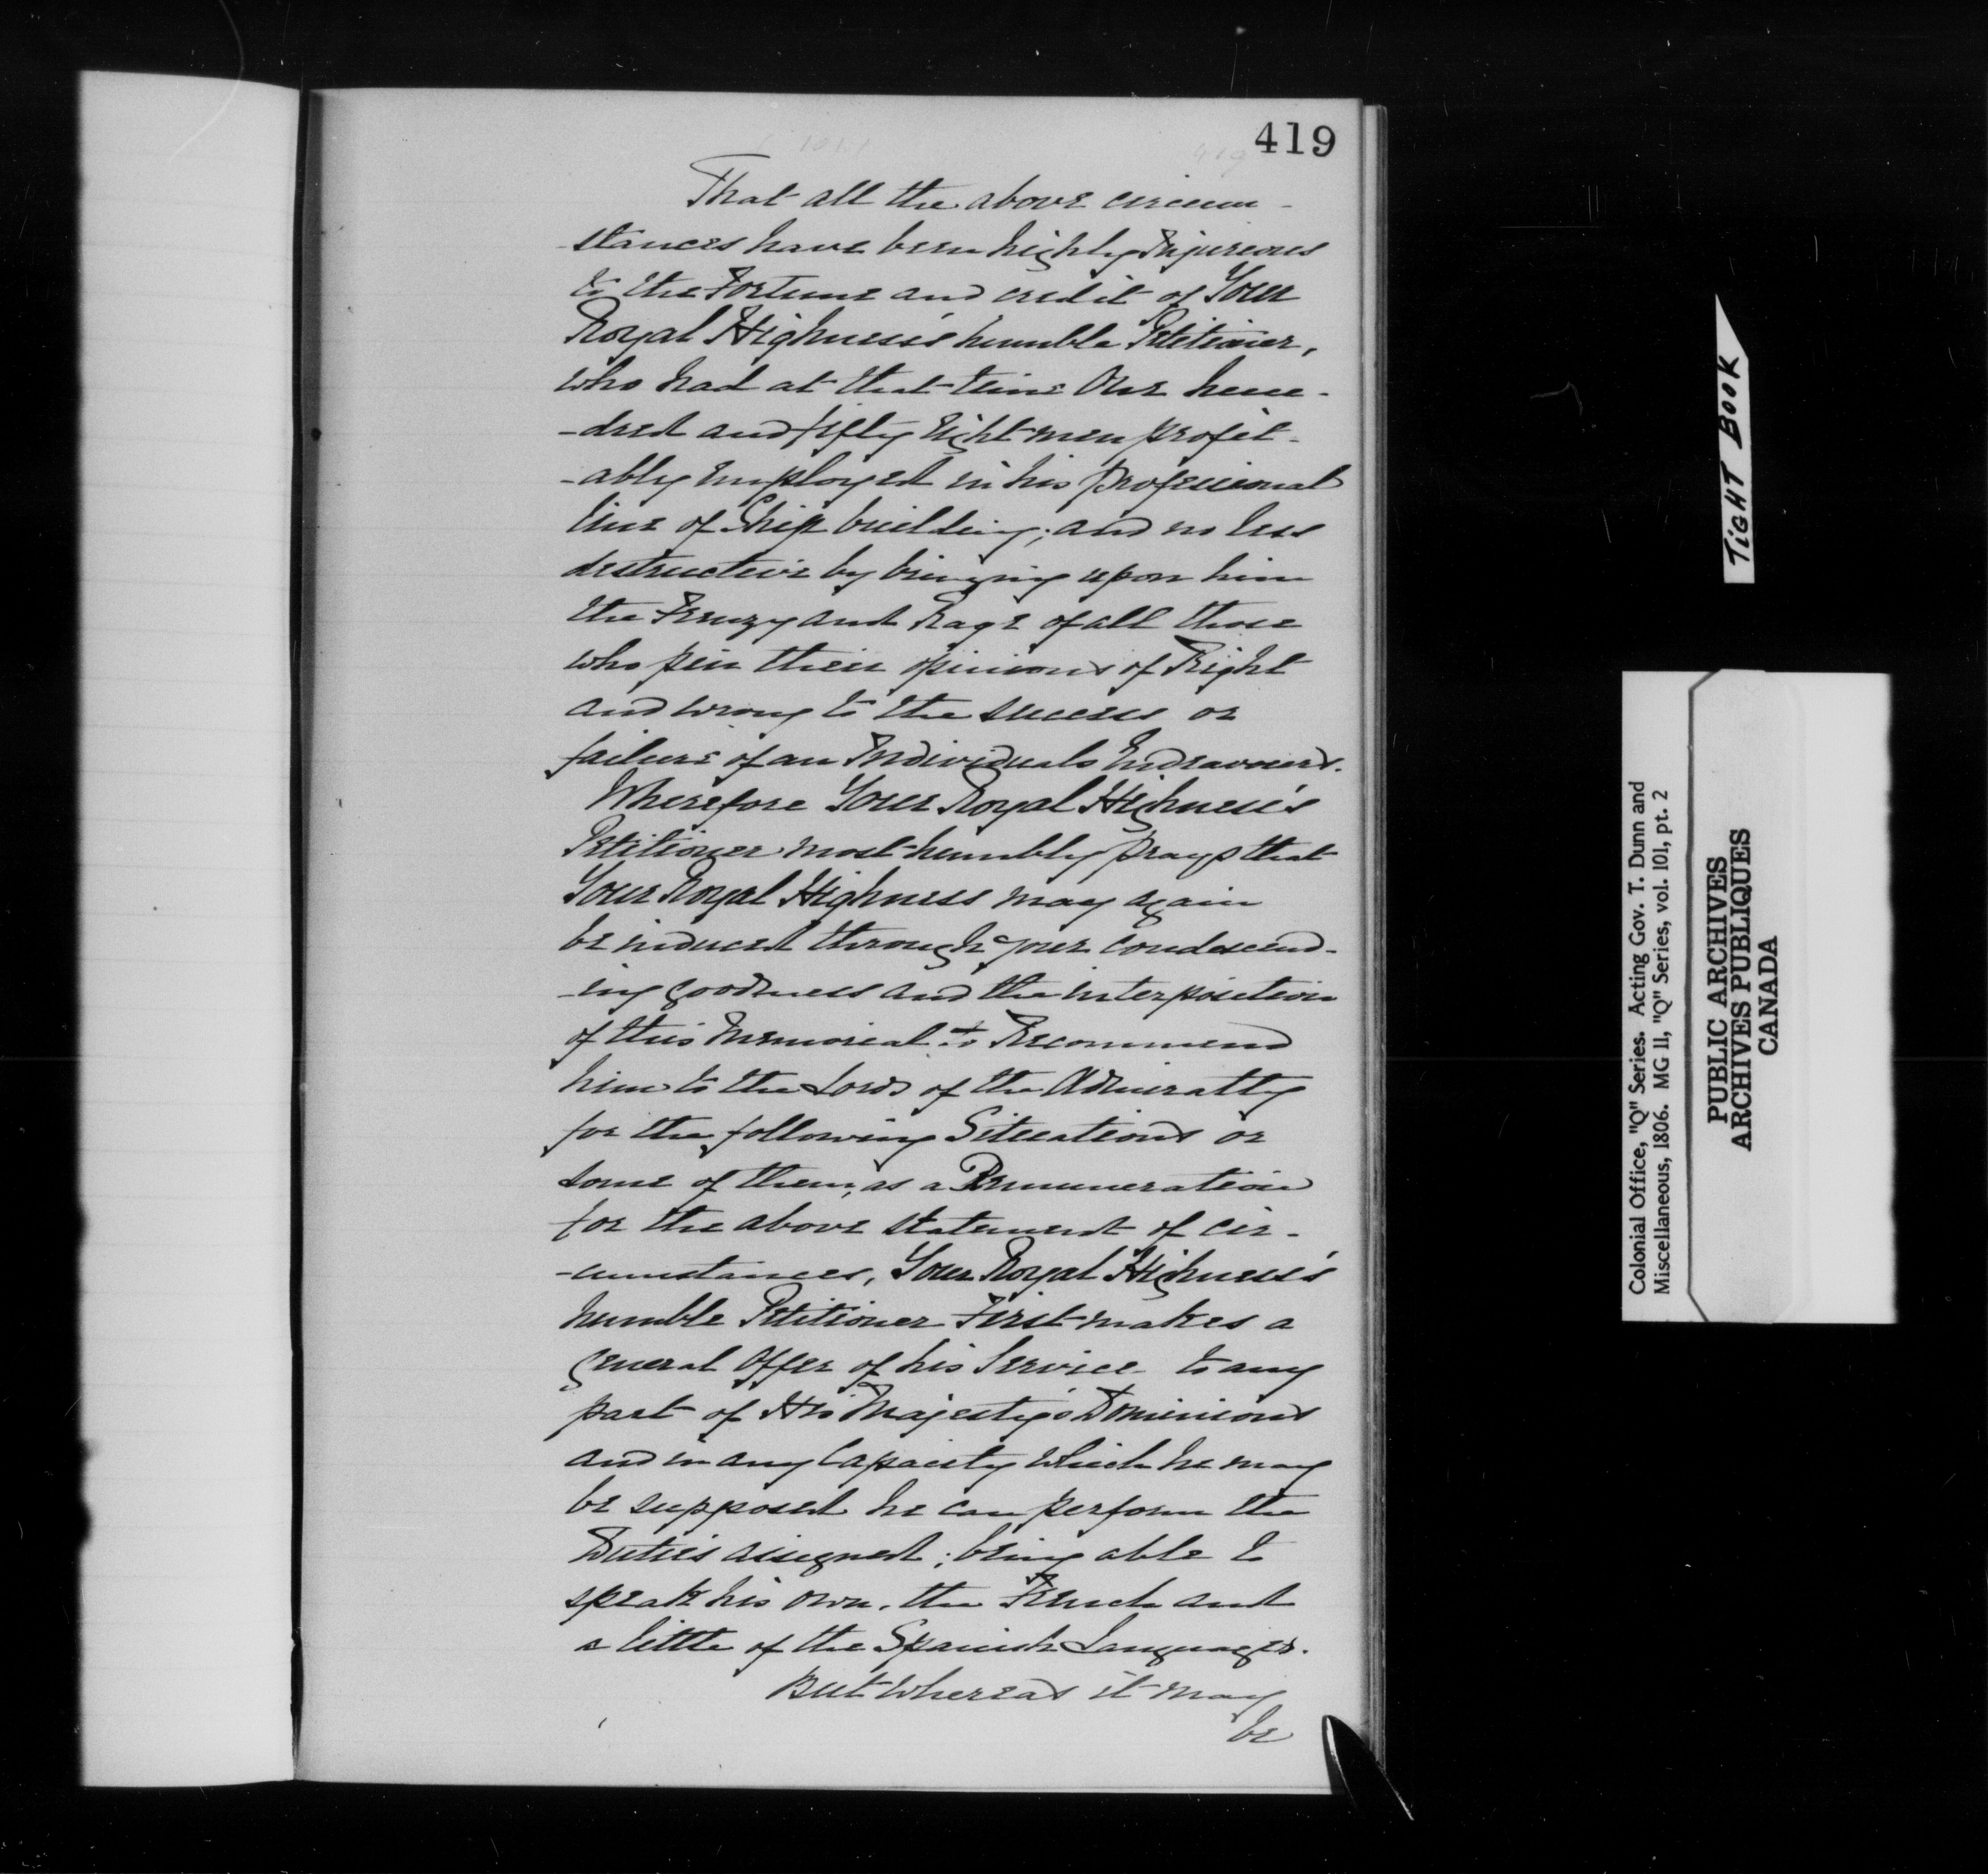 419
That all the above circum-
-stances have been highly Injureous
to the Fortune and credit of Your
Royal Highness's humble Petitioner,
who had at that time One hun-
-dred and fifty Eight men profit-
-ably Employed in his professional
line of Ship building; and no less
destructive by bringing upon him
the Frenzy and Rage of all those
who pin their opinions of Right
and wrong to the success or
failure of an Individuals Endeavours.
Wherefore Your Royal Highness's
Petitioner most humbly prays that
Your Royal Highness may again
be induced through your condescend-
-ing goodness and the interposition
of this Memorial to Recommend
him to the Lords of the Admiralty
for the following Situations or
some of them, as a Remuneration
for the above statement of cir-
-cumstances, Your Royal Highness's
humble Petitioner First makes a
General Offer of his Service to any
part of His Majesty's Dominions
and in any Capacity which he may
be supposed he can perform the
Duties assigned; being able to
speak his own, the French and
a little of the Spanish Languages.
But whereas it may
be
TIGHT BOOK
Colonial Office, "Q" Series. Acting Gov. T. Dunn and
Miscellaneous, 1806. MG 11, "Q" Series, vol. 101, pt. 2
PUBLIC ARCHIVES
ARCHIVES PUBLIQUES
CANADA